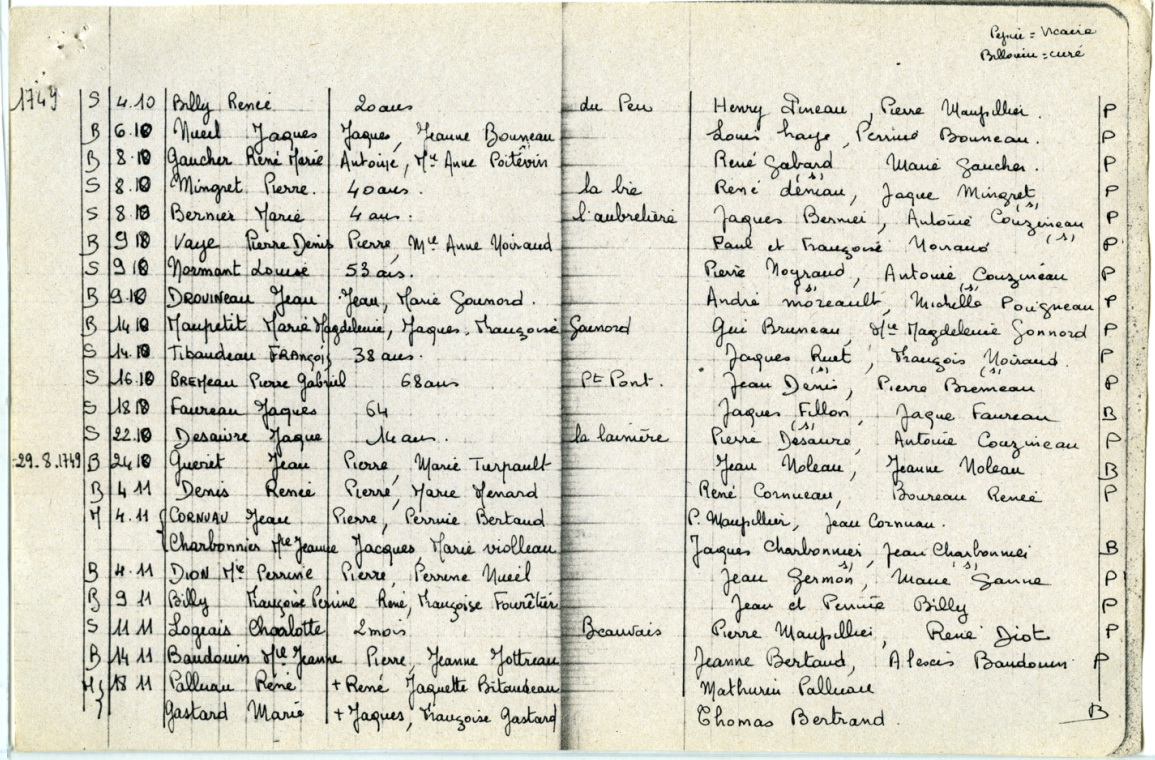 Pepnié = Vicaire
Billouin = curé
1749 S 4.10 Billy Renée 20 ans du Peu Henry Dineau, Pierre Maupillier. P
B 6.10 Nueil Jaques Jaques, Jeanne Bouneau Louis haye, Perrine Bouneau. P
B 8.10 Gaucher René Marie Antoine, Mie Anne Poitevin René Gabard Marie Gaucher. P
S 8.10 Mingret Pierre. 40 ans. la bie René déniau (s), Jaque Mingret P
S 8.10 Bernier Marie 4 ans. l'aubrelière Jaques Bernier, Antoine Couzineau (s) P
B 9 10 Vaye Pierre Denis Pierre, Mie Anne Noiraud Paul et Françoise Noiraud (s) P
S 9 10 Normant Louise 53 ans. Pierre Noyraud, Antoine Couzineau P
B 9.10 DROUINEAU Jean Jean, Marie Gounord. André moreault (s), Michelle (s) Pougneau P
B 14 10 Maupetit Marie Magdeleine, Jaques, Françoise Gounord Gui Bruneau, Mie Magdeleine Gonnord P
S 14.10 Tibaudeau FRANÇOIS 38 ans. Jaques Ruet, François Noiraud P
S 16.10 BREMEAU Pierre Gabriel 68 ans Pt Pont. Jean Denis (s), Pierre Bremeau (s) P
S 18 10 Faureau Jaques 64 Jaques Fillon, Jaque Faureau B
S 22.10 Desaivre Jaque 14 ans. la lainière Pierre Désauré (s), Antoine Couzineau P
29.8.1749 B 24 10 Gueret Jean Pierre, Marie Turpault Jean Noleau, Jeanne Noleau B
B 4 11 Denis Renée Pierre, Marie Menard René Cornueau, Boureau Renée P
M 4.11 { CORNUAU Jean Pierre, Perrine Bertaud P. Maupillier, Jean Cornuau.
Charbonnier Mie Jeanne Jacques, Marie violleau Jaques Charbonnier, Jean Charbonnier B
B 4.11 DION Mie Perrine Pierre, Perrine Nueil Jean Germon (s), Marie (s) Ganne P
B 9 11 Billy Françoise Perrine René, Françoise Fourêtier Jean et Perrine Billy P
S 11 11 Logeais Charlotte 2 mois Beauvais Pierre Maupillier, René Diot P
B 14 11 Baudouin Mie Jeanne Pierre, Jeanne Jottreau Jeanne Bertaud, Alexis Baudouin P
M 18 11 } Palluau René + René Jaquette Bitaudeau Mathurin Palluau
Gastard Marie + Jaques, Françoise Gastard Thomas Bertrand. B